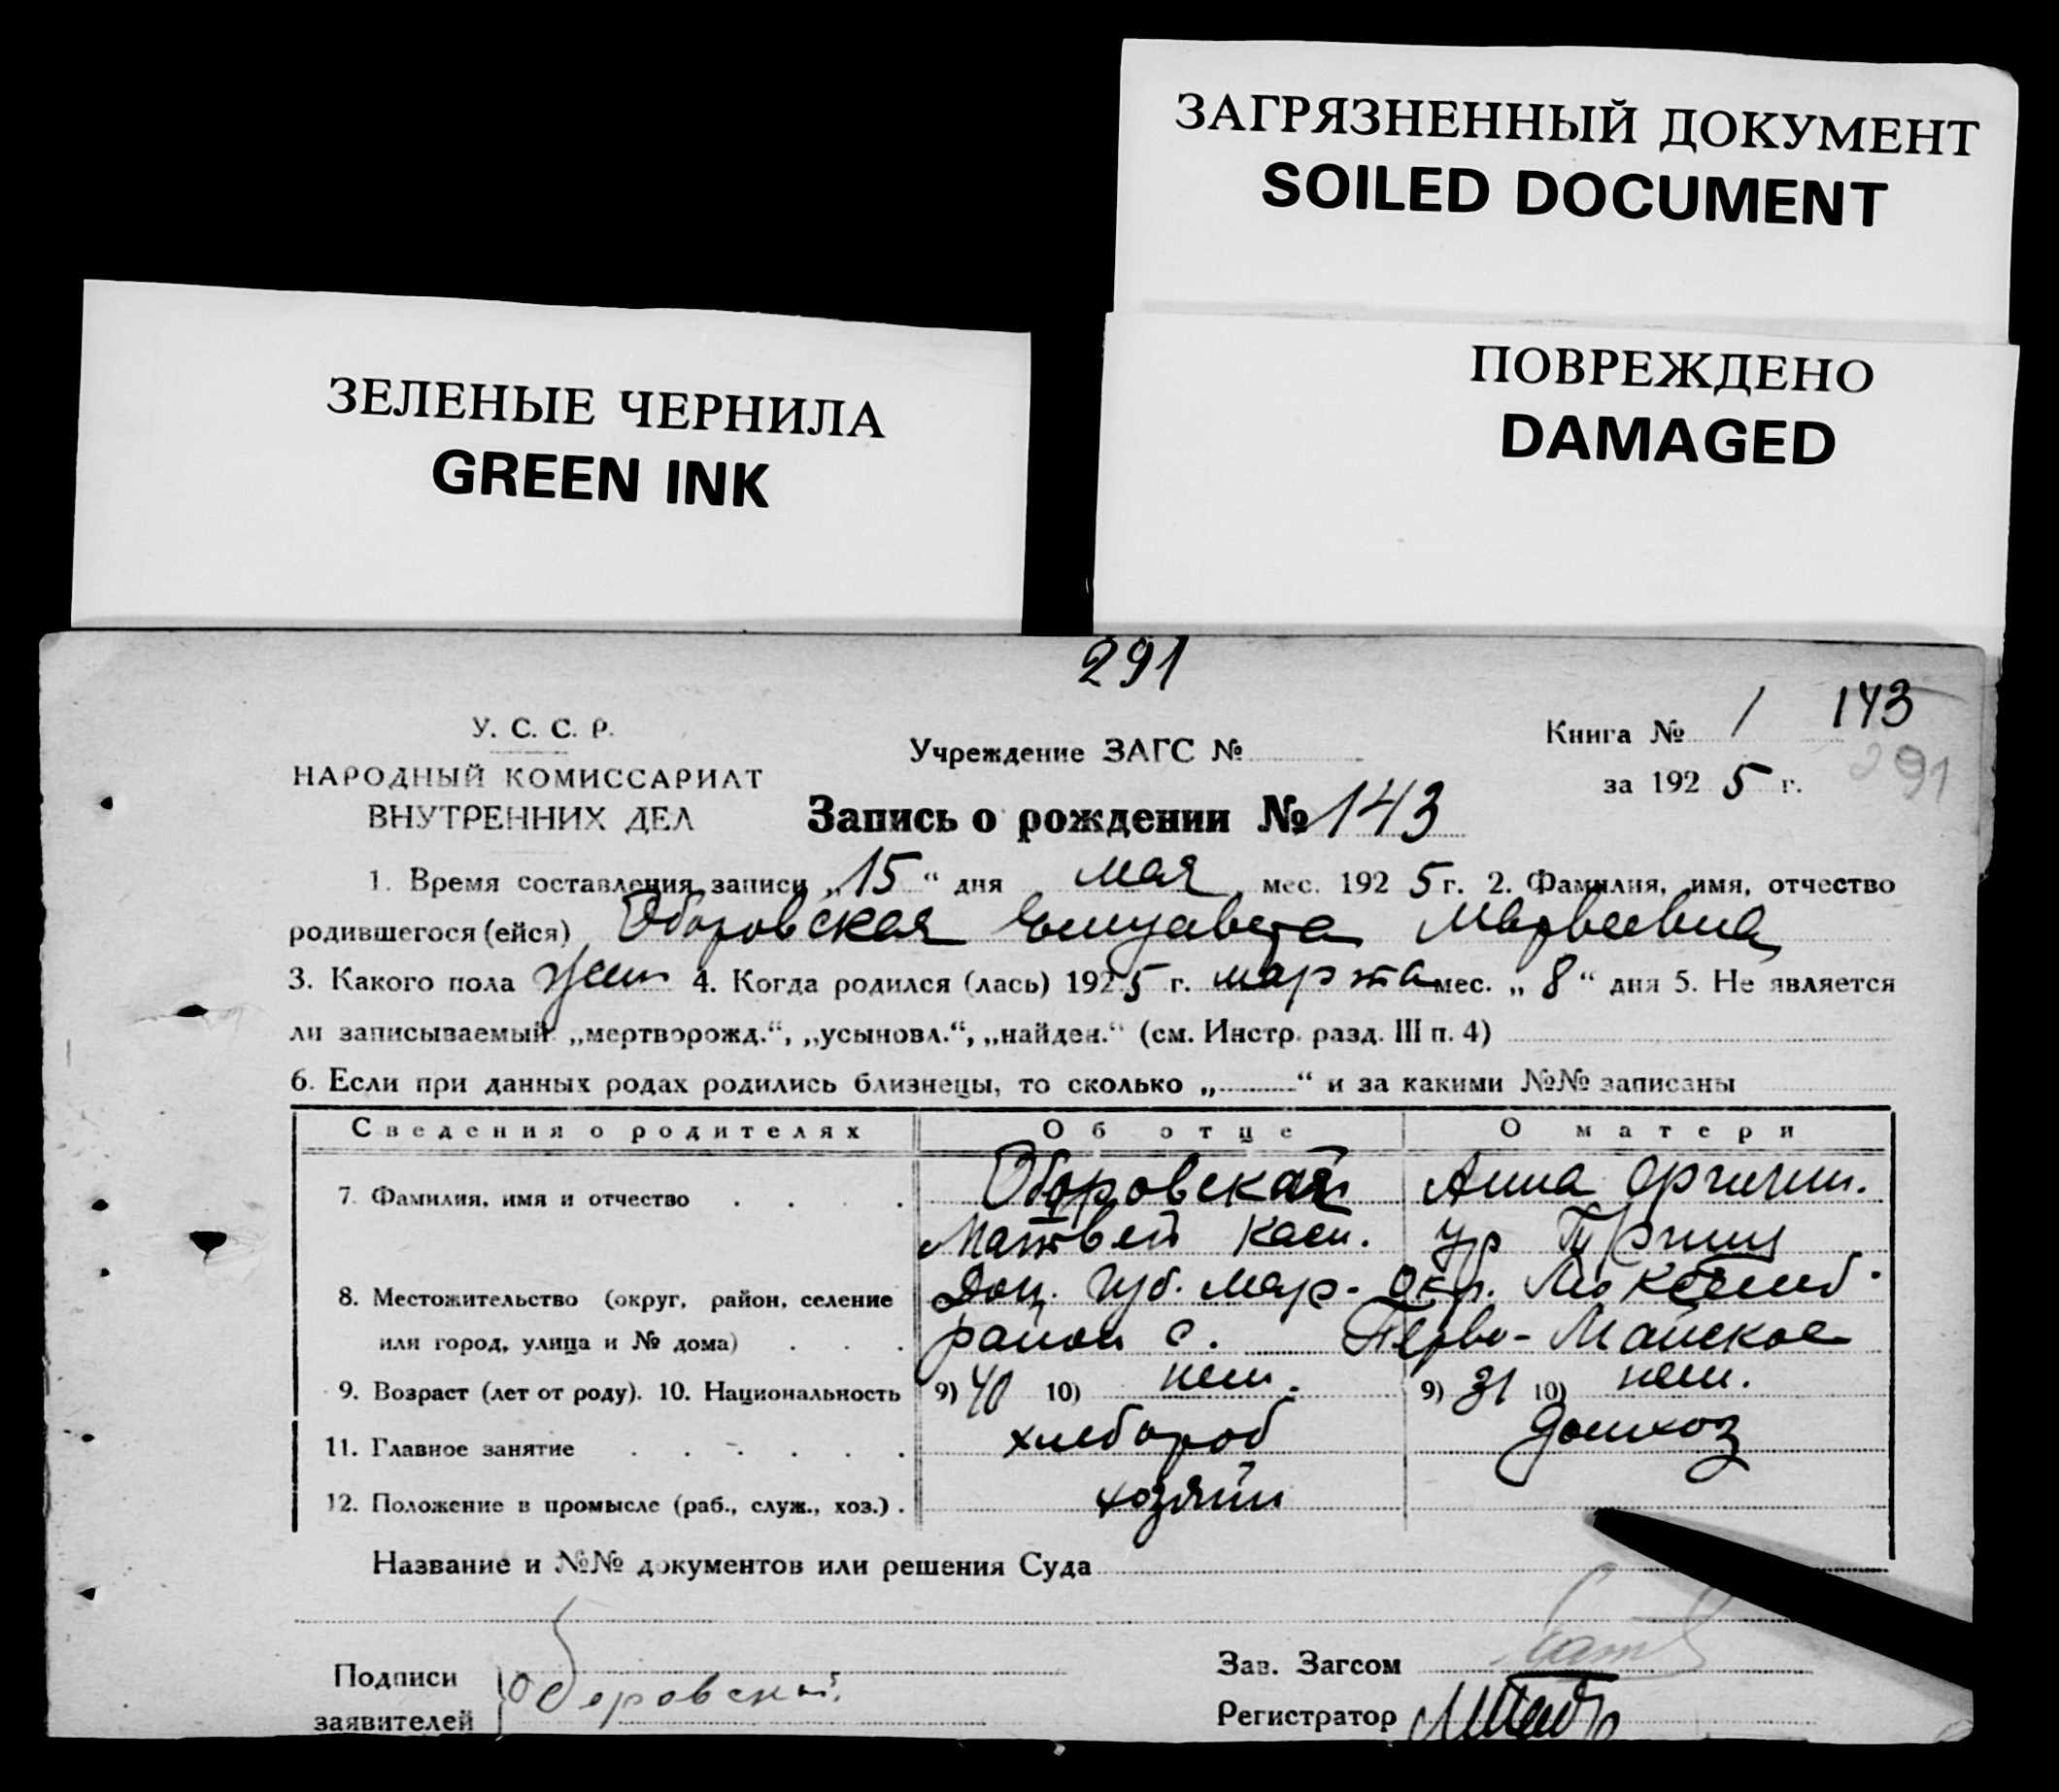 ЗАГРЯЗНЕННЫЙ ДОКУМЕНТ
SOILED DOCUMENT
ПОВРЕЖДЕНО
DAMAGED
ЗЕЛЕНЫЕ ЧЕРНИЛА
GREEN INK
291
У. С. С. Р.
НАРОДНЫЙ КОМИССАРИАТ
ВНУТРЕННИХ ДЕЛ
Учреждение ЗАГС №
Книга № 1 143
за 192 5 г. 291
Запись о рождении № 143
1. Время составления записи „15“ дня мая мес. 192 5 г. 2. Фамилия, имя, отчество
родившегося (ейся) Оборовская Елизавета Матвеевна
3. Какого пола жен 4. Когда родился (лась) 192 5 г. марта мес. „8“ дня 5. Не является
ли записываемый „мертворожд.“, „усыновл.“, „найден.“ (см. Инстр. разд. III п. 4)
6. Если при данных родах родились близнецы, то сколько „ “ и за какими №№ записаны
Сведения о родителях Об отце О матери
7. Фамилия, имя и отчество Оборовская Анна
Матвей Касп. ур
8. Местожительство (округ, район, селение Дон. Губ. Мар. Окр.
или город, улица и № дома) район с. Перво-Майское
9. Возраст (лет от роду). 10. Национальность 9) 40 10) нем. 9) 31 10) нем.
11. Главное занятие хлебороб домхоз
12. Положение в промысле (раб., служ., хоз.) хозяин
Название и №№ документов или решения Суда
Подписи
заявителей Оборовский
Зав. Загсом
Регистратор